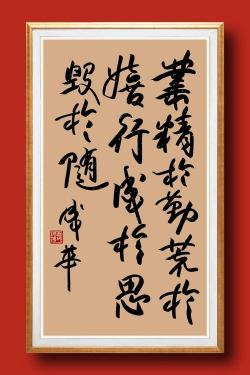 業精於勤荒於
嬉行成於思
毀於随
華